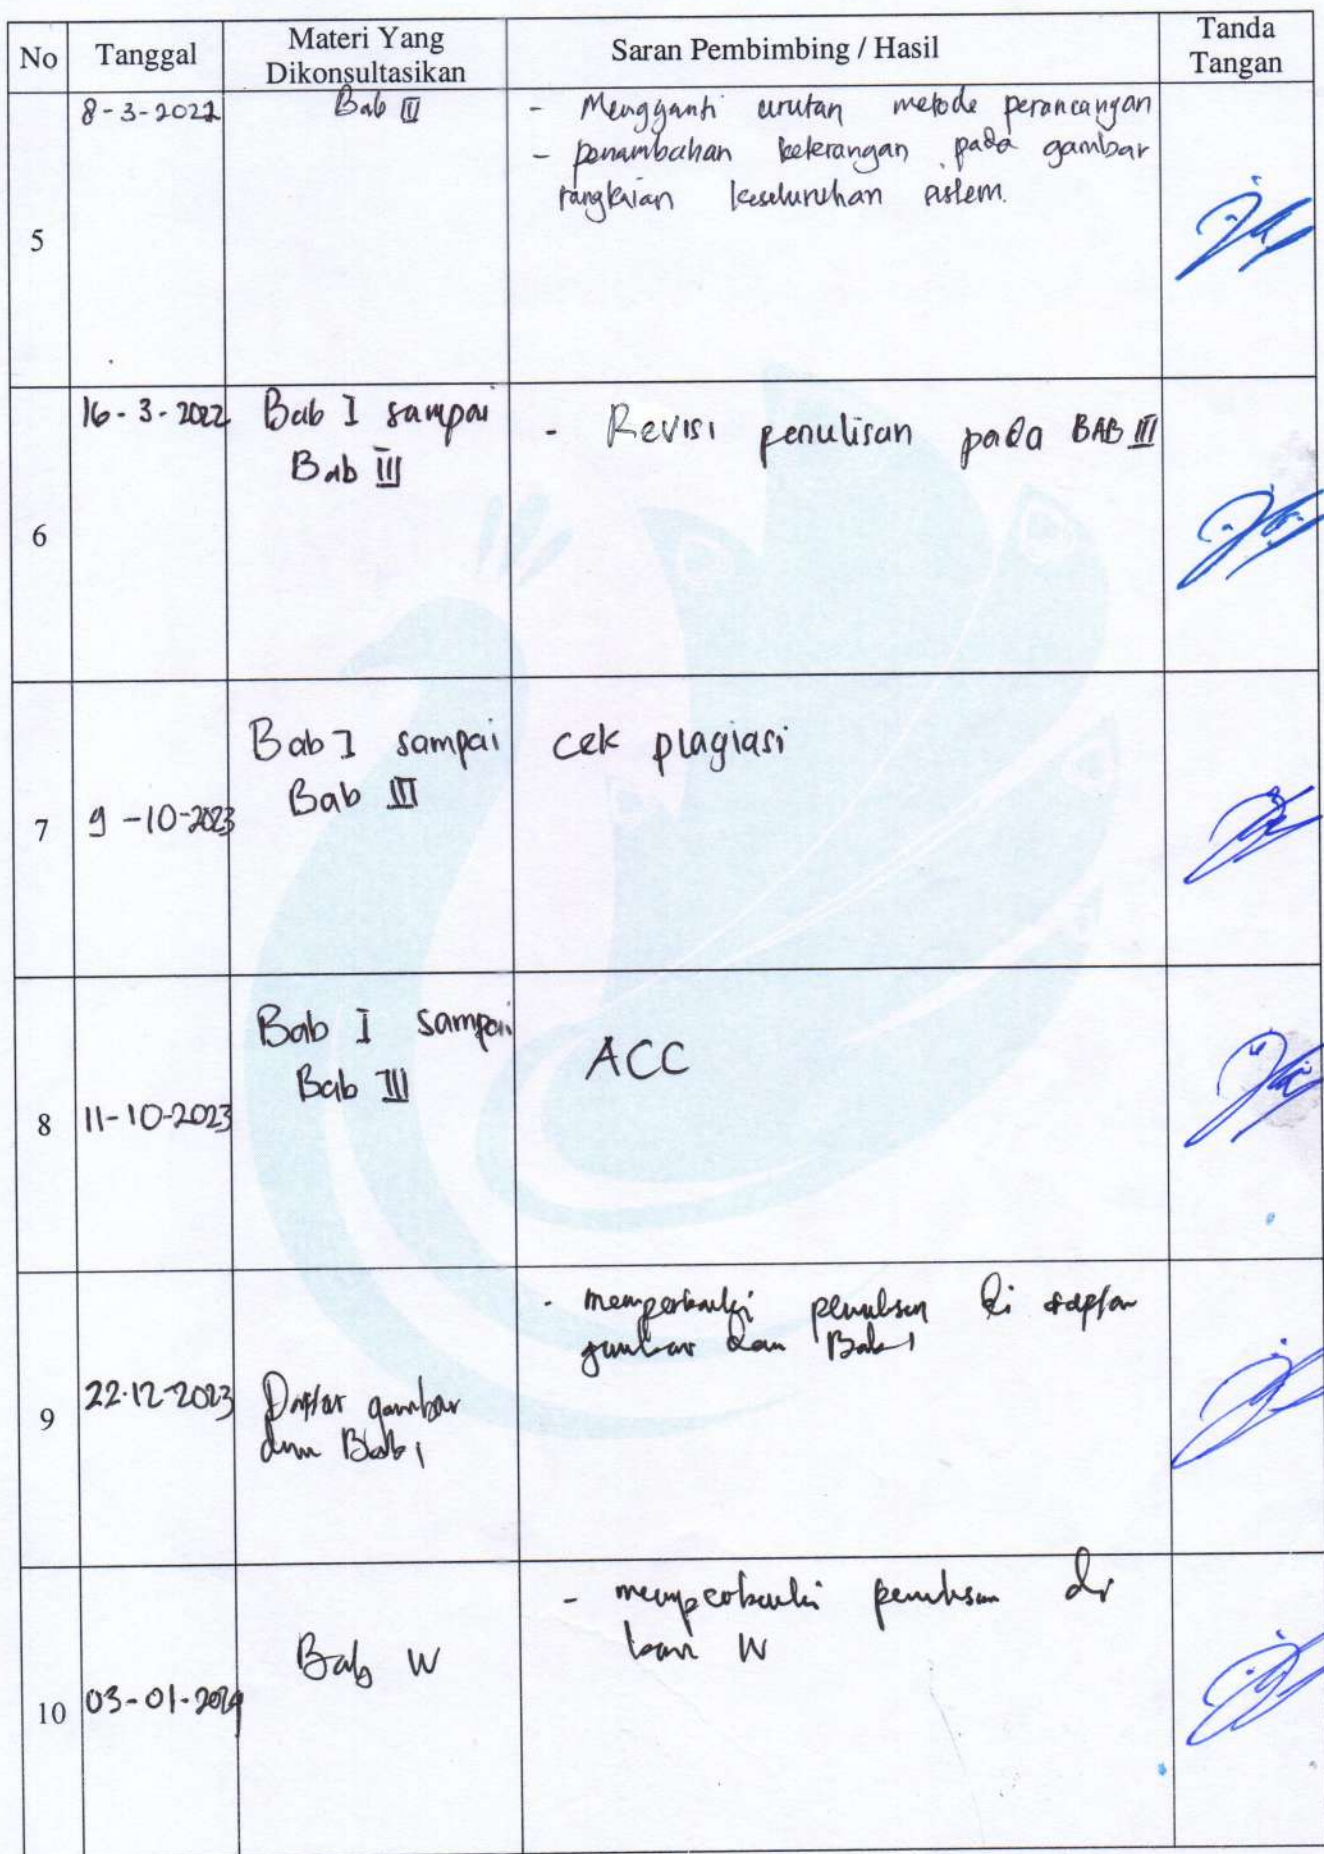 No Tanggal Materi Yang Dikonsultasikan Saran Pembimbing / Hasil Tanda Tangan
5 8-3-2022 Bab III - Mengganti urutan metode perancangan
- penambahan keterangan pada gambar
rangkaian keseluruhan sistem.
6 16-3-2022 Bab I sampai - Revisi penulisan pada BAB III
Bab III
7 9-10-2023 Bab I sampai cek plagiasi
Bab III
8 11-10-2023 Bab I sampai ACC
Bab III
9 22-12-2023 Daftar gambar - memperbaiki penulisan di daftar
dan Bab 1 gambar dan Bab 1
10 03-01-2024 Bab IV - memperbaiki penulisan di
bab IV